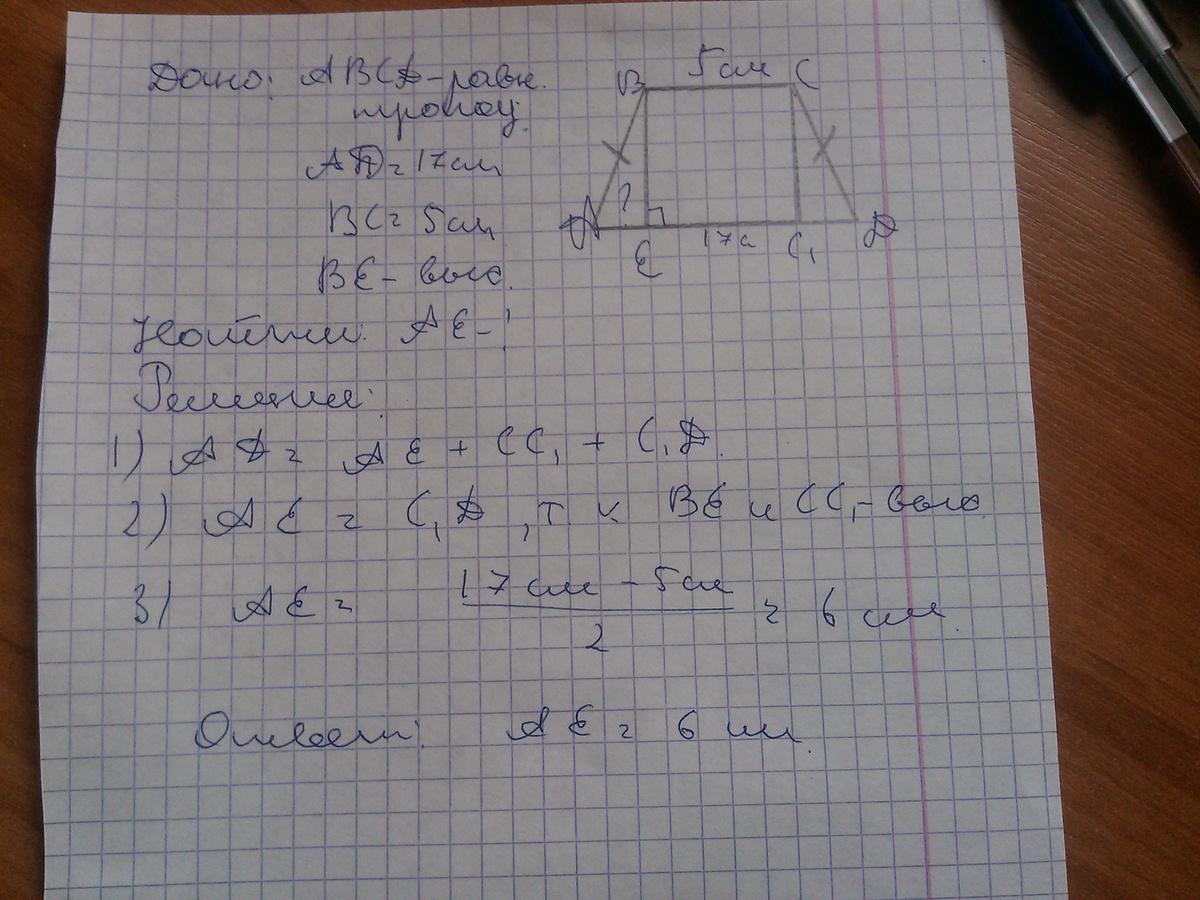 Дано: ABCD-равн.
трапец.
AD = 17см
BC = 5см
BE - выс.
Найти: AE-?
Решение:
1) AD = AE + CC₁ + C₁D.
2) AE = C₁D, т к BE и CC₁-выс.
3) AE = 17 см - 5 см / 2 = 6 см.
Ответ: AE = 6 см.
B 5 см C
?
A E 17с C₁ D